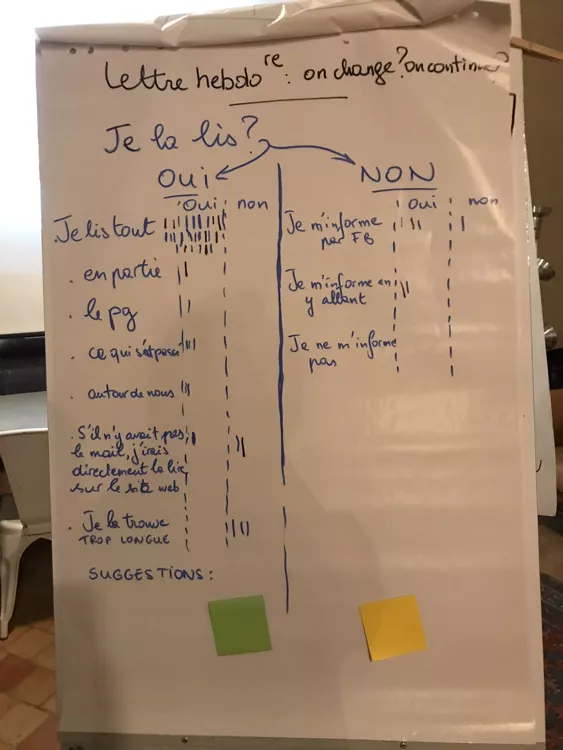 Lettre hebdo re : on change? on continue?
Je la lis?
OUI
NON
Oui non
Je lis tout
. en partie
. le pg
. ce qui s'est passé
. autour de nous
. S'il n'y avait pas
le mail, j'irais
directement la lire
sur le site web
. Je la trouve
TROP LONGUE
SUGGESTIONS :
oui non
Je m'informe
par FB
Je m'informe en
y allant
Je ne m'informe
pas